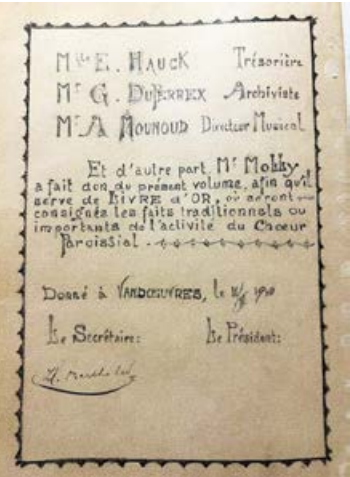 Mlle E. HAUCK Trésorière
Mr G. DUPERREX Archiviste
Mr A MOUNOUD Directeur Musical
Et d'autre part, Mr
a fait don du présent volume, afin qu'il
serve de LIVRE d'OR, où seront
consignés les faits traditionnels ou
importants de l'activité du Chœur
Paroissial.
Donné à VANDŒUVRES, le 1910
Le Secrétaire: Le Président: